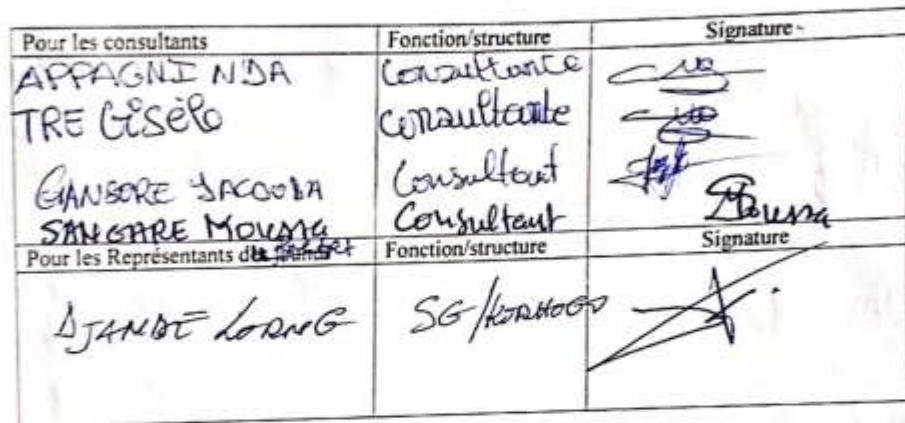 Pour les consultants Fonction/structure Signature
APPAGNI N'DA Consultante
TRE Gisèle Consultante
GANSORE YACOUBA Consultant
SANGARE MOUSSA Consultant Moussa
Pour les Représentants Fonction/structure Signature
DJANBÉ SG/KORHOGO